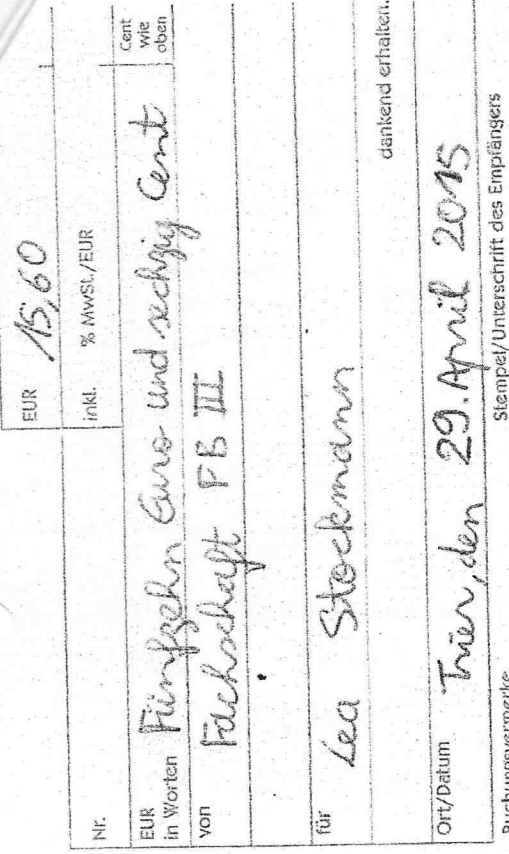 EUR 15,60
Nr. inkl. % MwSt./EUR
EUR in Worten Fünfzehn Euro und sechzig Cent Cent wie oben
von Fachschaft FB III
für Lea Stockmann
dankend erhalten.
Ort/Datum Trier, den 29. April 2015
Buchungsvermerke Stempel/Unterschrift des Empfängers